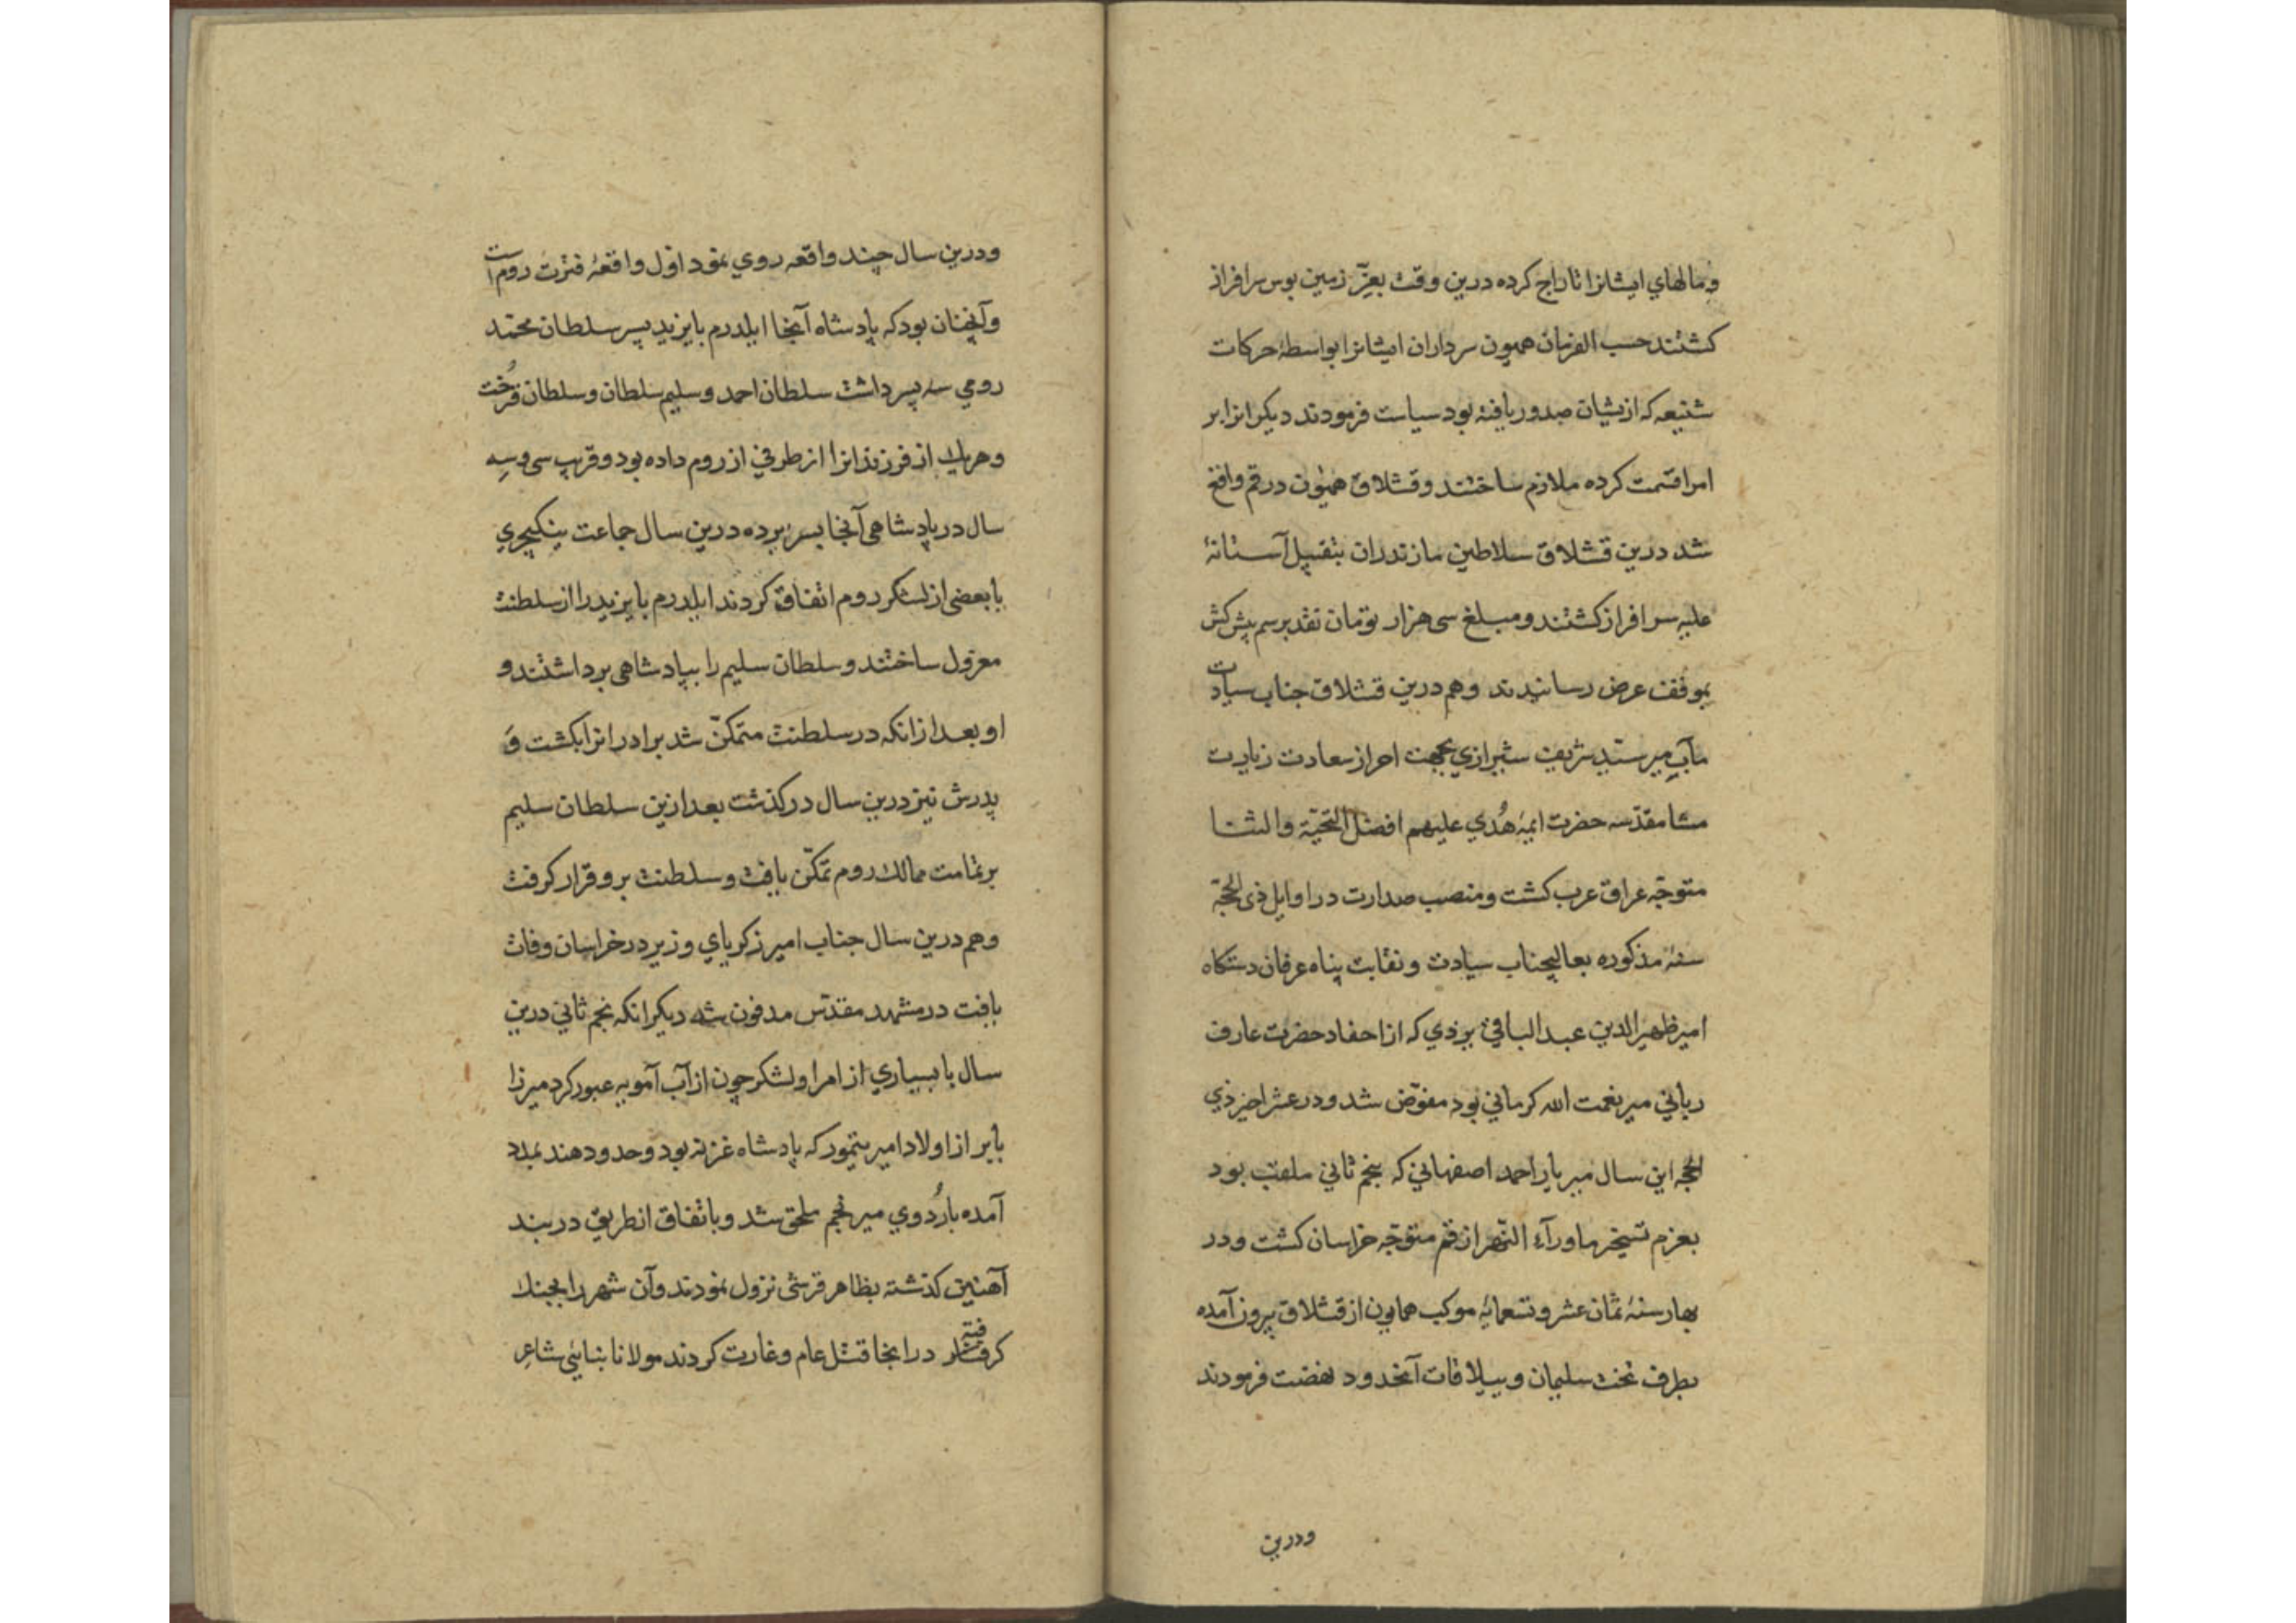 و مالهای ایشانرا تاراج کرده درین وقت بعزّ زمین بوس سرافراز
کشتند حسب الفرمان همیون سرداران ایشانرا بواسطهٔ حرکات
شنیعه که ازیشان صدور یافته بود سیاست فرمودند دیکرانرا بر
امرا قسمت کرده ملازم ساختند و قشلاق همیون در قم واقع
شد درین قشلاق سلاطین مازندران بتقبیل آستانهٔ
علیه سرافراز کشتند و مبلغ سی هزار تومان نقد برسم پیش کش
بموقف عرض رسانیدند و هم درین قشلاق جناب سیادت
مآب میر سیّد شریف شیرازی بجهت احراز سعادت زیارت
مشا مقدّسه حضرت ایمهٔ هُدی علیهم افضل التحیّة والثنا
متوجّه عراق عرب کشت و منصب صدارت در اوایل ذی الحجّة
سنهٔ مذکوره بعالیجناب سیادت و نقابت پناه عرفان دستکاه
امیر ظهیر الدین عبد الباقی یزدی که از احفاد حضرت عارف
ربانی میر نعمت الله کرمانی بود مفوّض شد و در عشر اخیر ذی
الحجه این سال میر یار احمد اصفهانی که بنجم ثانی ملقب بود
بعزم تسخیر ماورآء النّهر از قم متوجّه خراسان کشت و در
بهار سنهٔ ثمان عشر و تسعمایٔه موکب همایون از قشلاق بیرون آمده
بطرف تخت سلیمان و ییلاقات آنحدود نهضت فرمودند
و درین
و درین سال چند واقعه روی نمود اوّل واقعهٔ فترت روم است
و آنچنان بود که پادشاه آنجا ایلدرم بایزید پسر سلطان محمّد
رومی سه پسر داشت سلطان احمد و سلیم سلطان و سلطان قرخت
و هریک از فرزندانرا از طرفی از روم داده بود و قریب سی و سه
سال در پادشاهی آنجا بسر برده درین سال جماعت ینکیچری
با بعضی از لشکر روم اتفاق کردند ایلدرم بایزید را از سلطنت
معزول ساختند و سلطان سلیم را بپادشاهی برداشتند و
او بعد از انکه در سلطنت متمکّن شد برادرانرا بکشت و
پدرش نیز درین سال درکذشت بعد ازین سلطان سلیم
بر تمامت ممالک روم تمکّن یافت و سلطنت برو قرار کرفت
و هم درین سال جناب امیر زکریای وزیر در خراسان وفات
یافت در مشهد مقدّس مدفون شد دیکر انکه نجم ثانی درین
سال با بسیاری از امرا و لشکر چون از آب آمویه عبور کرد میرزا
بابر از اولاد امیر تیمور که پادشاه غزنه بود و حدود هند بمدد
آمده باُردوی میر نجم ملحق شد و باتفاق از طریق دربند
آهنین کذشته بظاهر قرشی نزول نمودند و آن شهر را بجنک
کرفته در انجا قتل عام و غارت کردند مولانا بنایئی شاعر